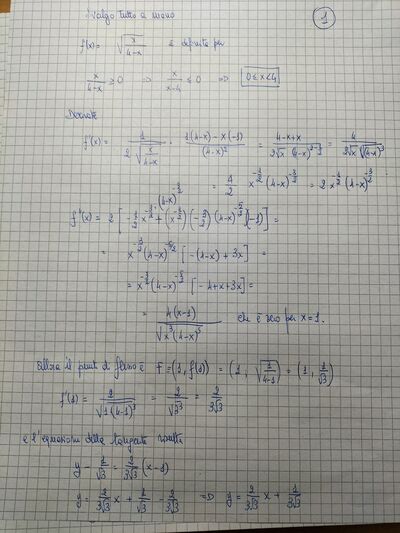 Svolgo tutto a mano
1
f(x) = √(x/(4-x)) è definita per
x/(4-x) ≥ 0 ⇒ x/(x-4) ≤ 0 ⇒ 0 ≤ x < 4
Derivate
f'(x) = 1/(2√(x/(4-x))) · (1(4-x) - x(-1))/(4-x)² = (4-x+x)/(2√x (4-x)^(2-1/2)) = 4/(2√x √(4-x)³)
= 4/2 x^(-1/2) (4-x)^(-3/2) = 2 x^(-1/2) (4-x)^(-3/2)
f''(x) = 2 [ -1/2 x^(-3/2) (4-x)^(-3/2) + (x^(-1/2)) (-3/2) (4-x)^(-5/2) (-1) ] =
= x^(-3/2) (4-x)^(-5/2) [ -(4-x) + 3x ] =
= x^(-3/2) (4-x)^(-5/2) [ -4+x+3x ] =
= 4(x-1)/√(x³(4-x)⁵) che è zero per x=1.
allora il punto di flesso è F = (1, f(1)) = (1, √(1/(4-1))) = (1, 1/√3)
f'(1) = 2/√(1(4-1)³) = 2/√3³ = 2/(3√3)
e l'equazione della tangente risulta
y - 1/√3 = 2/(3√3) (x-1)
y = 2/(3√3) x + 1/√3 - 2/(3√3) ⇒ y = 2/(3√3) x + 1/(3√3)